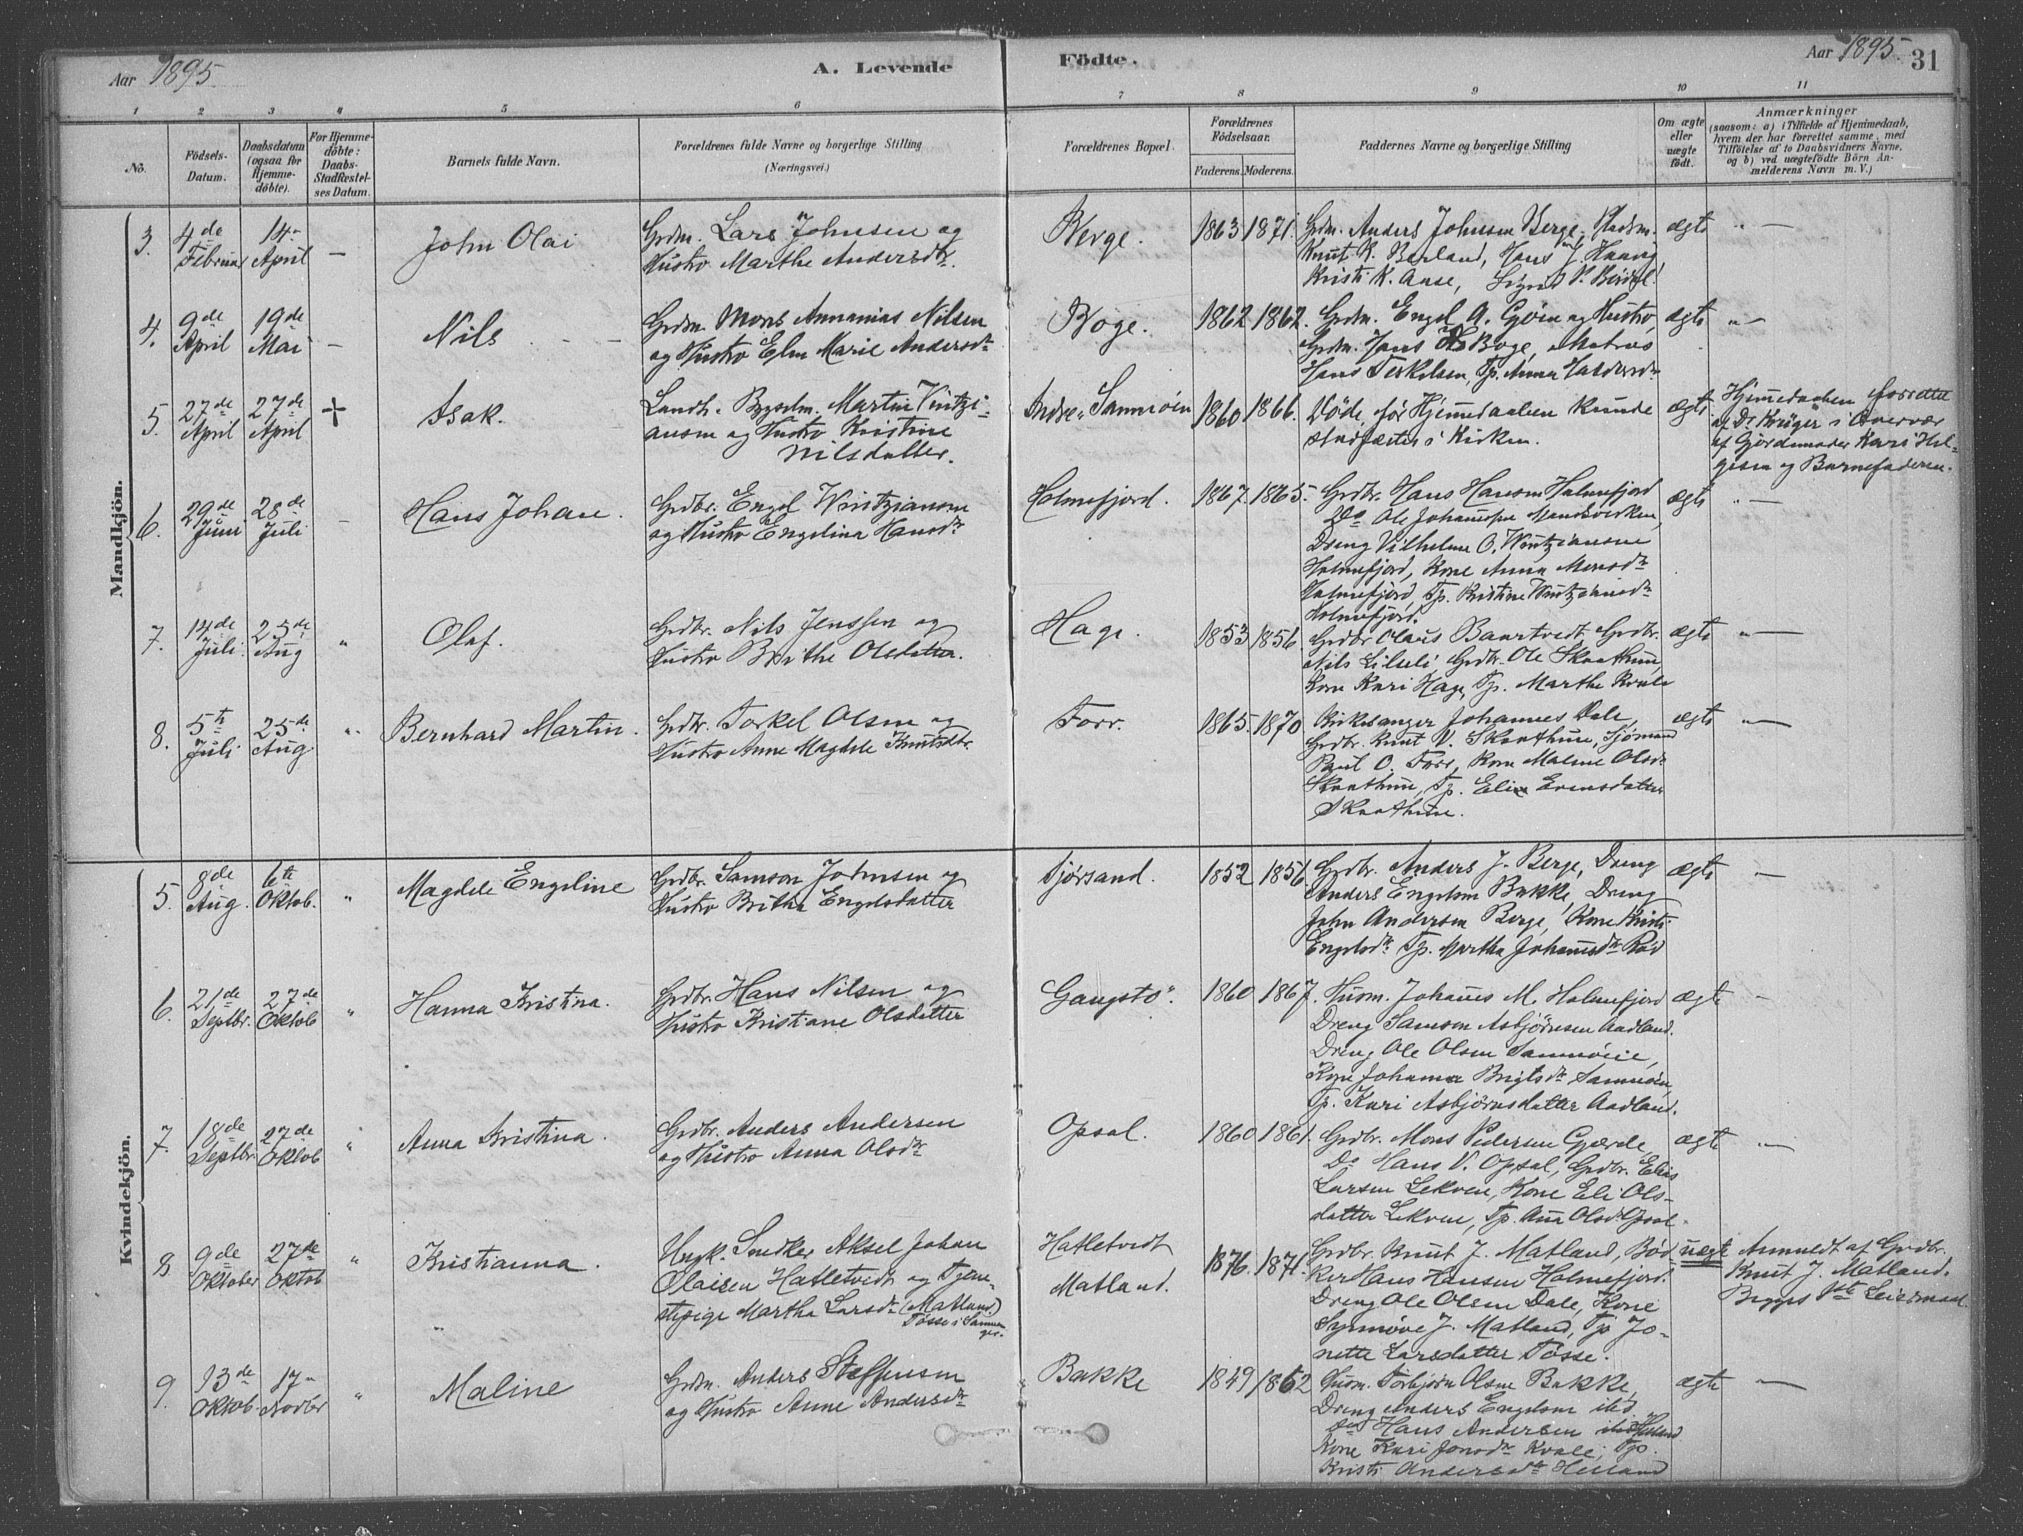 Aar 1895.
A. Levende
Födte.
Aar 1895. 31
1 2 3 4 5 6 7 8 9 10 11
No.
Födsels-
Datum.
Daabsdatum
(ogsaa for
Hjemme-
döbte).
For Hjemme-
döbte:
Daabs-
Stadfæstel-
ses Datum.
Barnets fulde Navn.
Forældrenes fulde Navne og borgerlige Stilling
(Næringsvei.)
Forældrenes Bopæl.
Forældrenes
Födselsaar.
Faderens. Moderens.
Faddernes Navne og borgerlige Stilling
Om ægte
eller
uægte
födt.
Anmærkninger
(saasom: a) i Tilfælde af Hjemmedaab,
hvem der har forrettet samme, med
Tilföielse af to Daabsvidners Navne,
og b) ved uægtefödte Börn An-
melderens Navn m. V.)
Mandkjön.
3. 4de Februar
14 April
—
John Olai
Grdm. Lars Johnsen og
Hustro Marthe Andersdtr.
Berge.
1863 1871.
Grdm. Anders Johnsen Berge,
Knut K. Berland, Hans J. Haavig,
Kristi K. Aase,
ægte
"—
4. 9de April
19de Mai
—
Nils
Grdm. Mons Annanias Nilsen
og Hustro Elen Marie Andersdtr
Boge.
1862 1862.
Grdm. Engel A. Gjøen og Hustro,
Grdm. Jans H. Boge, Matros
Hans Terkelsen, Tp. Anna Haldorsdtr
ægte
"—
5. 27de April
27de April
+
Isak.
Landh. Bygselm. Martin Vintzi-
ansen og Hustro Kristine
Nilsdatter.
Indre Samnøen
1860 1866.
Døde før Hjemmedaaben kunde
stadfæstes i Kirken.
ægte
Hjemmedaaben forrettet
af Dr Krüger i Overvær
af Gjordemoder Kari Hel-
gesen og Barnefaderen.
6. 29de Juni
28de Juli
—
Hans Johan.
Grdbr. Engel Wintziansen
og Hustro Engelina Hansdtr
Holmefjord.
1867. 1865.
Grdbr. Hans Hansen Holmefjord
Do Ole Johannesen
Dreng Vilhelm O. Wintziansen
Holmefjord, Kone Anna Monsdtr
Holmefjord, Tp. Kristine Wintziansdtr
Holmefjord.
ægte
"—
7. 14de Juli
25de Aug
"
Olaf.
Grdbr. Nils Jenssen og
Hustro Brithe Olsdatter.
Hage.
1853 1856.
Grdbr Olaus Baartvedt, Grdbr.
Nils Lilseli, Grdbr. Ole Skaathun,
Kone Kari Hage, Tp. Marthe Kvale
ægte
"—
8. 5te Juli
25de Aug
"
Bernhard Martin.
Grdbr. Torkel Olsen og
Hustro Anne Magdele Knutsdtr.
Torr.
1865. 1870
Kirkesanger Johannes Dale,
Grdbr. Knut V. Skaathun, Sjømand
Paul O. Torr, Kone Malene Olsdr
Skaathun, Tp. Elin Evensdatter
Skaathun.
ægte
"—
Kvindekjön.
5. 8de Aug.
6te Oktob.
"
Magdele Engeline
Grdbr. Samson Johnsen og
Hustro Britha Engelsdatter
Tjørsand.
1852 1856
Grdbr. Anders J. Berge, Dreng
Anders Engelsen Bakke, Dreng
John Andersen Berge, Kone Kristi
Engelsdtr Tp. Martha Johannesdtr Rød
ægte
—
6. 21de Septbr.
27de Oktob
"
Hanna Kristina.
Grdbr. Hans Nilsen og
Hustro Kristiane Olsdatter
Gangstø.
1860 1867.
Husm. Johannes M. Holmefjord
Dreng Samson Asbjørnsen Aadland.
Dreng Ole Olsen Samnøen,
Kone Johanna Brigtsdtr Samnøen,
Tp. Kari Asbjørnsdatter Aadland.
ægte
—
7. 18de Septbr.
27de Oktob
"
Anna Kristina.
Grdbr. Anders Andersen
og Hustro Anna Olsdtr
Opsal.
1860 1861.
Grdbr. Mons Pedersen Gjærde,
Do Hans V. Opsal, Grdbr. Elias
Larsen Lekven, Kone Eli Ols-
datter Lekven, Tp. Ana Olsdr Opsal.
ægte
—
8 9de Oktober
27de Oktob
"
Kristianna.
Ungk. Snedker Aksel Johan
Olaisen Hatletvedt og Tjen-
stepige Martha Larsdtr (Matland.)
Tøsse i Samnanger.
Hatletvedt
Matland.
1876. 1871.
Grdbr. Knut J. Matland, Bød-
ker Hans Hansen Holmefjord.
Dreng Ole Olsen Dale, Kone
Synnøve J. Matland, Tp. Jo-
nette Larsdatter Tøsse.
uægte
Anmeldt af Grdbr.
Knut J. Matland.
Begges 1ste Leiermaal.
9. 13de Oktob.
17 Novbr
"
Maline
Grdm. Anders Steffensen
og Hustro Anne Andersdtr
Bakke
1849 1862
Husm. Torbjørn Olsen Bakke,
Dreng Anders Engelsen ibid
do Hans Andersen Heiland
Kone Kari Jonsdtr Kvale, Tp.
Kristi Andersdtr Heiland
ægte
—